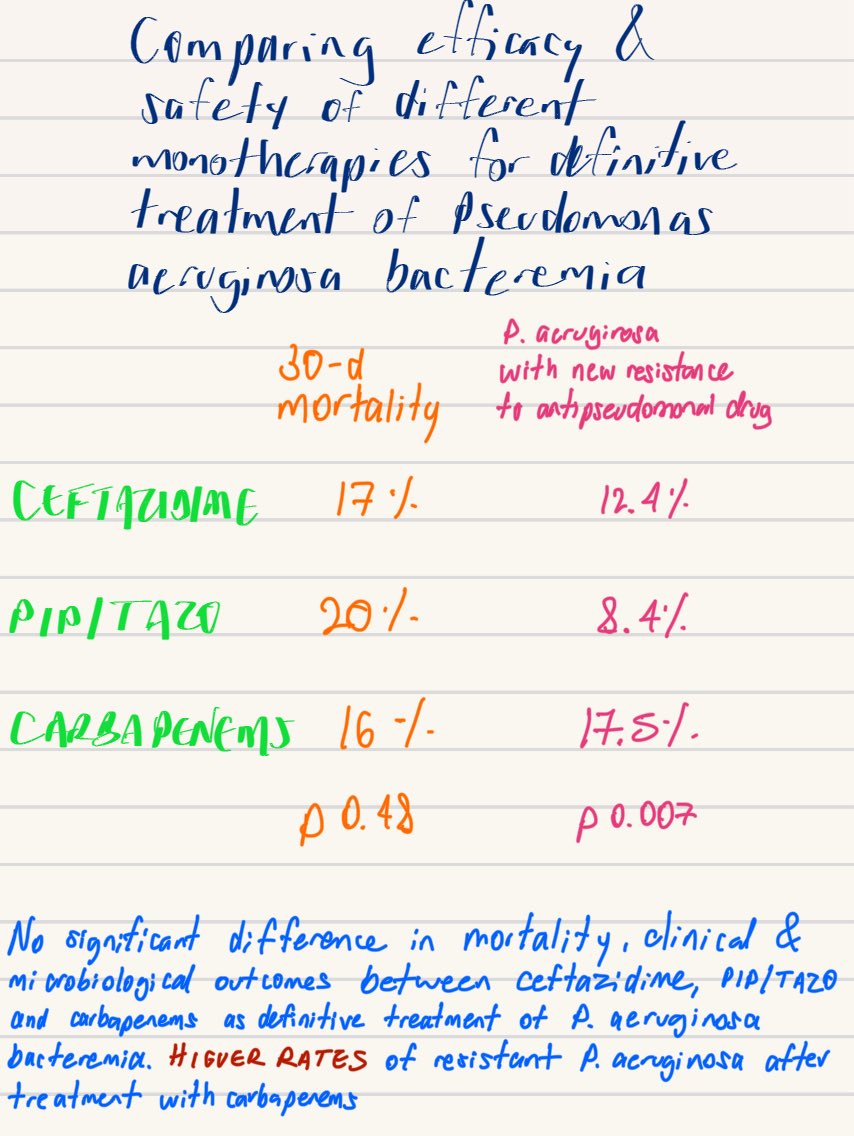 Comparing efficacy &
safety of different
monotherapies for definitive
treatment of Pseudomonas
aeruginosa bacteremia
30-d
mortality
P. aeruginosa
with new resistance
to antipseudomonal drug
CEFTAZIDIME 17% 12.4%
PIP/TAZO 20% 8.4%
CARBAPENEMS 16% 17.5%
p 0.48 p 0.007
No significant difference in mortality, clinical &
microbiological outcomes between ceftazidime, PIP/TAZO
and carbapenems as definitive treatment of P. aeruginosa
bacteremia. HIGHER RATES of resistant P. aeruginosa after
treatment with carbapenems